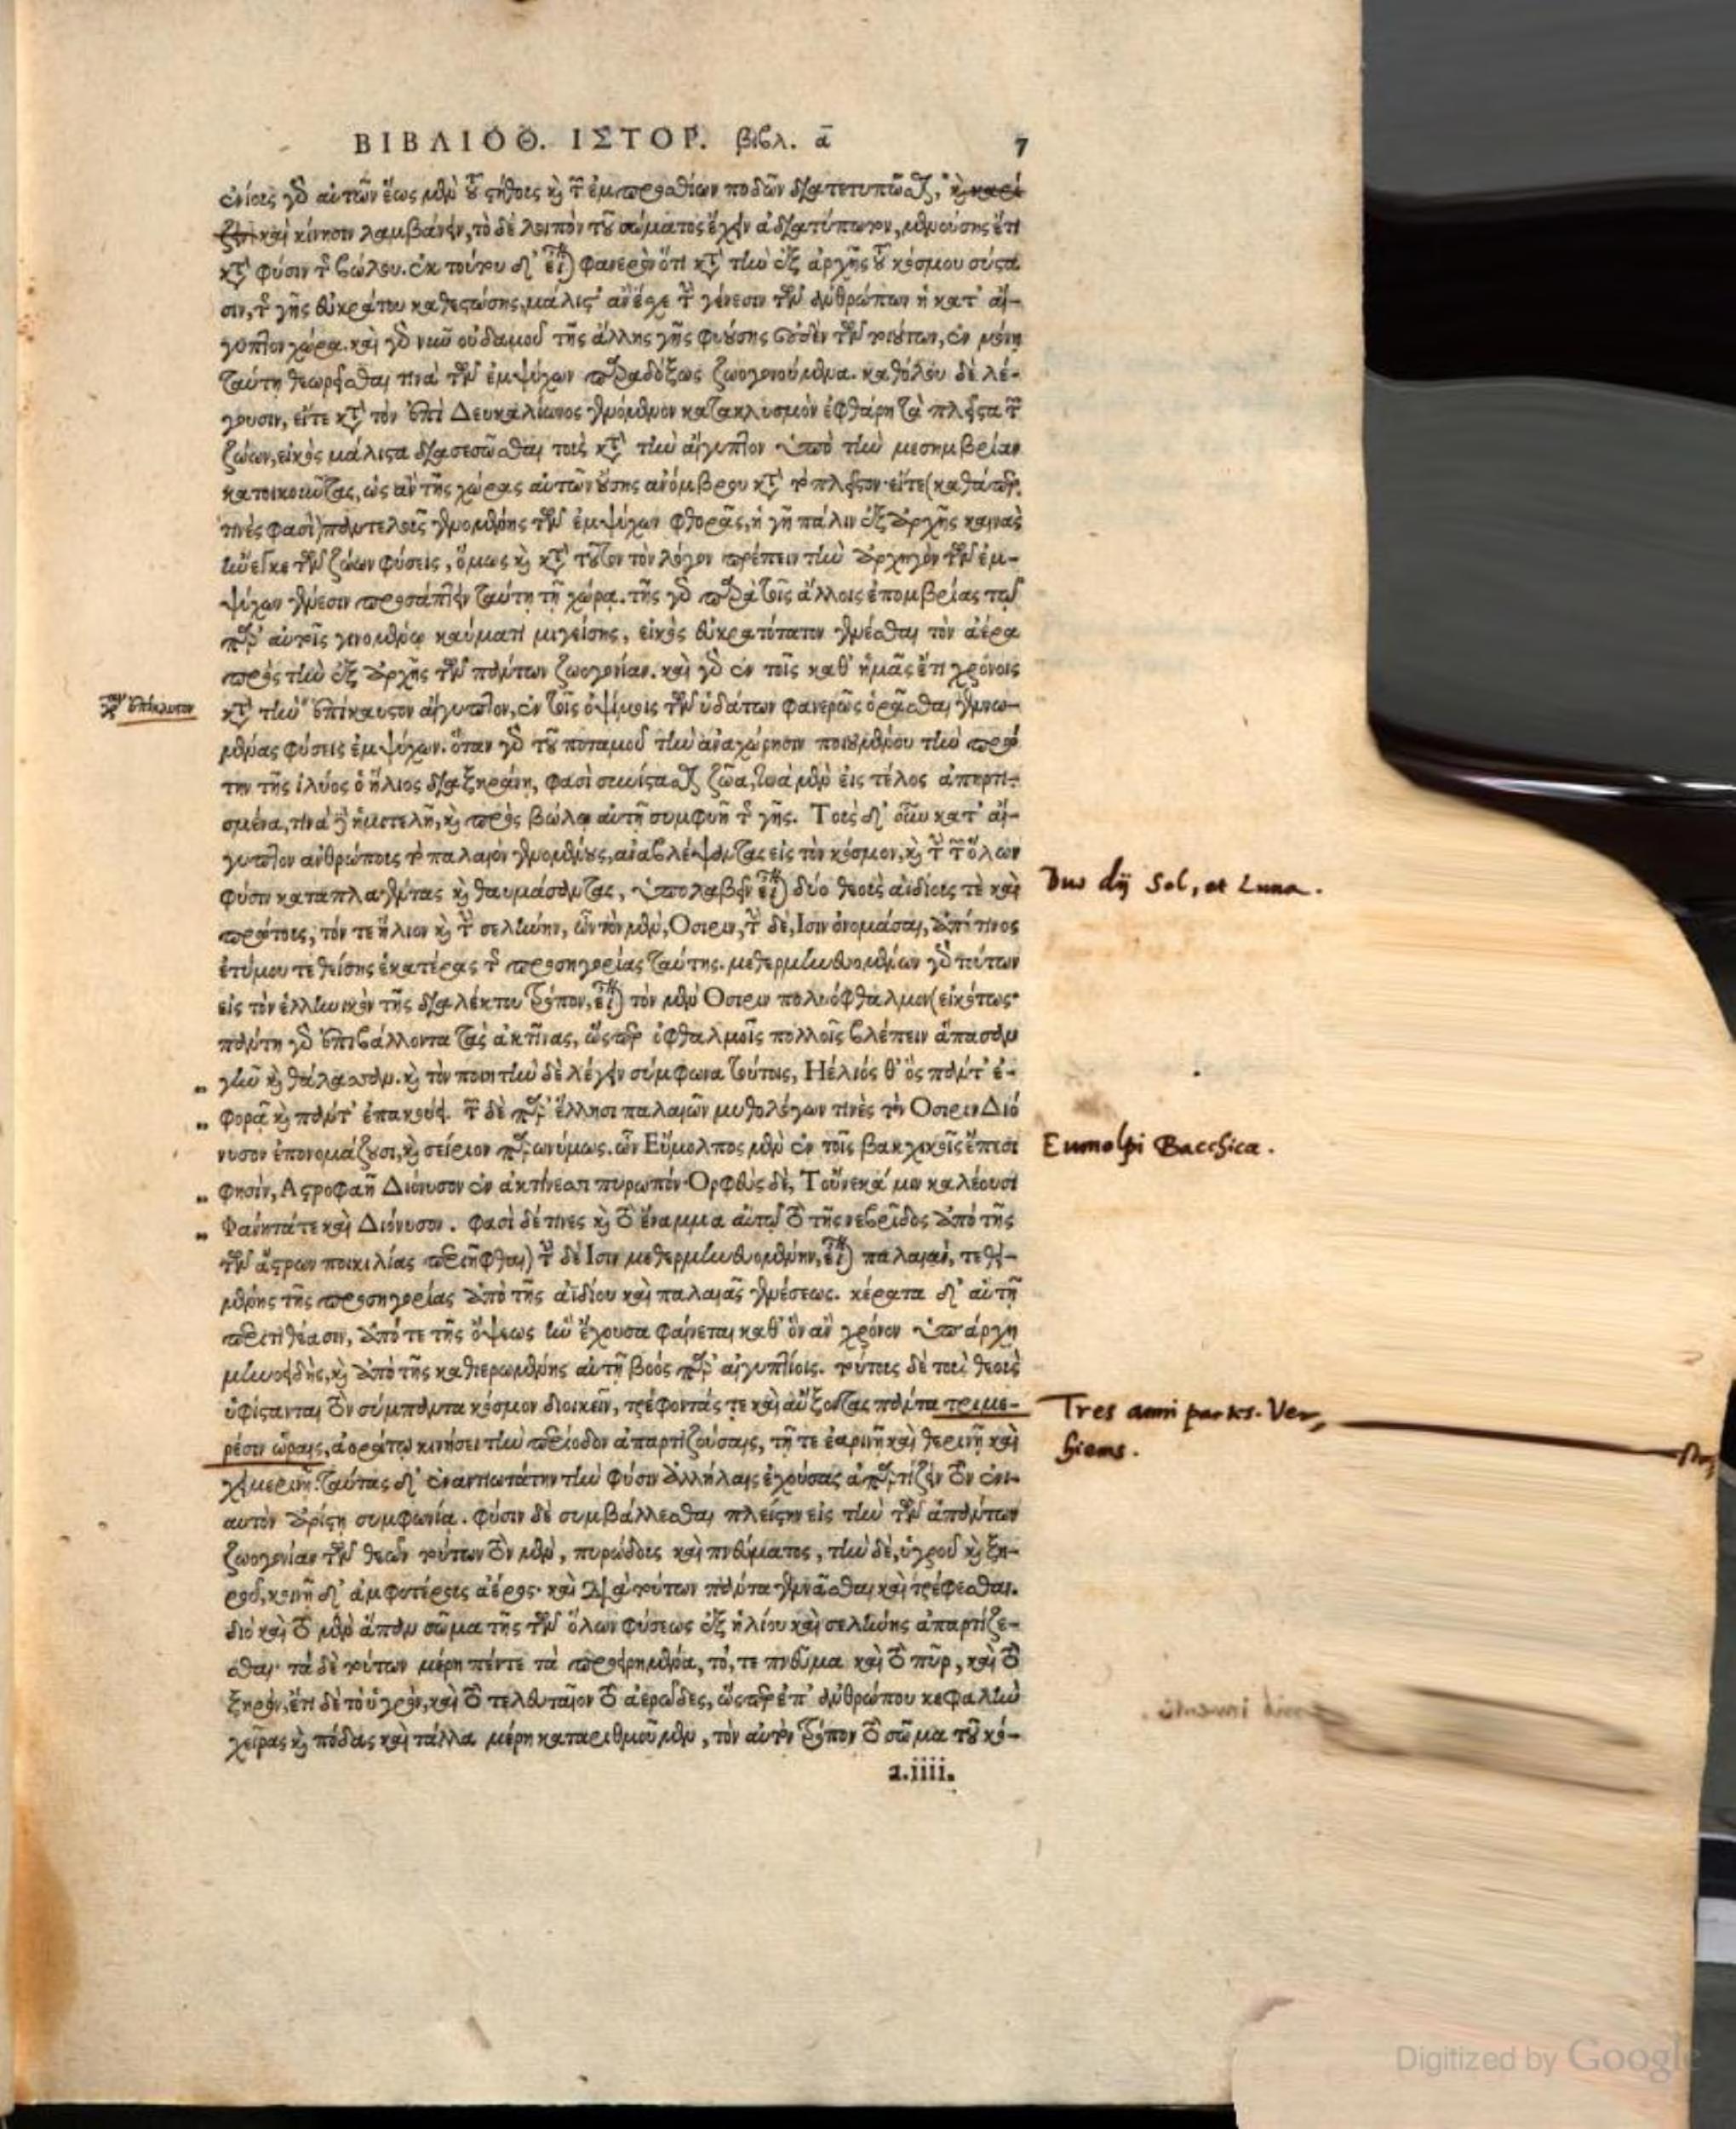 ΒΙΒΛΙΟΘ. ΙΣΤΟΡ. βιβλ. ᾱ 7
ἐνίοις γὰρ αὐτῶν ἕως μὲν τοῦ στήθους καὶ τῶν ἐμπροσθίων ποδῶν διατετυπῶσθαι,
καὶ κίνησιν λαμβάνειν, τὸ δὲ λοιπὸν τοῦ σώματος ἔχειν ἀδιατύπωτον, μενούσης ἔτι
κατὰ φύσιν τῆς βώλου. ἐκ τούτου δ' εἶναι φανερὸν ὅτι κατὰ τὴν ἐξ ἀρχῆς τοῦ κόσμου σύστα
σιν, τῆς γῆς εὐκράτου καθεστώσης, μάλιστ' ἂν ἔσχε τὴν γένεσιν τῶν ἀνθρώπων ἡ κατ' αἴ-
γυπτον χώρα. καὶ γὰρ νῦν οὐδαμοῦ τῆς ἄλλης γῆς φυούσης οὐδὲν τῶν τοιούτων, ἐν μόνῃ
ταύτῃ θεωρεῖσθαι τινὰ τῶν ἐμψύχων παραδόξως ζωογονούμενα. καθόλου δὲ λέ-
γουσιν, εἴτε κατὰ τὸν ἐπὶ Δευκαλίωνος γενόμενον κατακλυσμὸν ἐφθάρη τὰ πλεῖστα τῶν
ζώων, εἰκὸς μάλιστα διασεσῶσθαι τοὺς κατὰ τὴν αἴγυπτον ὑπὸ τὴν μεσημβρίαν
κατοικοῦντας, ὡς ἂν τῆς χώρας αὐτῶν οὔσης ἀνόμβρου κατὰ τὸ πλεῖστον· εἴτε (καθάπερ
τινές φασι) παντελοῦς γενομένης τῶν ἐμψύχων φθορᾶς, ἡ γῆ πάλιν ἐξ ἀρχῆς καινὰς
ἤνεγκε τῶν ζώων φύσεις, ὅμως καὶ κατὰ τοῦτον τὸν λόγον πρέπειν τὴν ἀρχηγὸν τῶν ἐμ-
ψύχων γένεσιν προσάπτειν ταύτῃ τῇ χώρᾳ. τῆς γὰρ παρὰ τοῖς ἄλλοις ἐπομβρίας τῷ
παρ' αὐτοῖς γινομένῳ καύματι μιγείσης, εἰκὸς εὐκρατότατον γενέσθαι τὸν ἀέρα
πρὸς τὴν ἐξ ἀρχῆς τῶν πάντων ζωογονίαν. καὶ γὰρ ἐν τοῖς καθ' ἡμᾶς ἔτι χρόνοις
κατὰ τὴν ἐπίκαυστον αἴγυπτον, ἐν τοῖς ὀψίμοις τῶν ὑδάτων φανερῶς ὁρᾶσθαι γεννω-
μένας φύσεις ἐμψύχων. ὅταν γὰρ τοῦ ποταμοῦ τὴν ἀναχώρησιν ποιουμένου τὴν πρώ
την τῆς ἰλύος ὁ ἥλιος διαξηράνῃ, φασὶ συνίστασθαι ζῶα, τινὰ μὲν εἰς τέλος ἀπηρτι-
σμένα, τινὰ δὲ ἡμιτελῆ, καὶ πρὸς βώλῳ αὐτῇ συμφυῆ τῆς γῆς. Τοὺς δ' οὖν κατ' αἴ-
γυπτον ἀνθρώπους τὸ παλαιὸν γενομένους, ἀναβλέψαντας εἰς τὸν κόσμον, καὶ τὴν τῶν ὅλων
φύσιν καταπλαγέντας καὶ θαυμάσαντας, ὑπολαβεῖν εἶναι δύο θεοὺς ἀϊδίους τὲ καὶ
Duo dij Sol, et Luna.
πρώτους, τόν τε ἥλιον καὶ τὴν σελήνην, ὧν τὸν μὲν, Οσιριν, τὴν δὲ, Ισιν ὀνομάσαι, ἀπό τινος
ἐτύμου τεθείσης ἑκατέρας τῆς προσηγορίας ταύτης. μεθερμηνευομένων γὰρ τούτων
εἰς τὸν ἑλληνικὸν τῆς διαλέκτου τρόπον, εἶναι τὸν μὲν Οσιριν πολυόφθαλμον (εἰκότως·
πάντη γὰρ ἐπιβάλλοντα τὰς ἀκτῖνας, ὥσπερ ὀφθαλμοῖς πολλοῖς βλέπειν ἅπασαν
γῆν καὶ θάλασσαν. καὶ τὸν ποιητὴν δὲ λέγειν σύμφωνα τούτοις, Ηέλιός θ' ὃς πάντ' ἐ-
φορᾷ καὶ πάντ' ἐπακούει. τῶν δὲ παρ' ἕλλησι παλαιῶν μυθολόγων τινὲς τὸν Οσιριν Διό
νυσον ἐπονομάζουσι, καὶ σείριον παρωνύμως. ὧν Εὔμολπος μὲν ἐν τοῖς βακχικοῖς ἔπεσι
Eumolpi Bacchica.
φησὶν, Αστροφαῆ Διόνυσον ἐν ἀκτίνεσσι πυρωπόν· Ορφεὺς δὲ, Τοὔνεκά μιν καλέουσι
Φάνητά τε καὶ Διόνυσον. φασὶ δέ τινες καὶ τὸ ἔναμμα αὐτῷ τὸ τῆς νεβρίδος ἀπὸ τῆς
τῶν ἄστρων ποικιλίας περιῆφθαι) τὴν δὲ Ισιν μεθερμηνευομένην, εἶναι παλαιάν, τεθει-
μένης τῆς προσηγορίας ἀπὸ τῆς ἀϊδίου καὶ παλαιᾶς γενέσεως. κέρατα δ' αὐτῇ
περιτιθέασιν, ἀπό τε τῆς ὄψεως ἣν ἔχουσα φαίνεται καθ' ὃν ἂν χρόνον ὑπάρχῃ
μηνοειδὴς, καὶ ἀπὸ τῆς καθιερωμένης αὐτῇ βοὸς παρ' αἰγυπτίοις. τούτους δὲ τοὺς θεοὺς
ὑφίστανται τὸν σύμπαντα κόσμον διοικεῖν, τρέφοντάς τε καὶ αὔξοντας πάντα τριμε-
Tres anni partes. Ver,
ρέσιν ὥραις, ἀοράτῳ κινήσει τὴν περίοδον ἀπαρτιζούσαις, τῇ τε ἐαρινῇ καὶ θερινῇ καὶ
hiems.
χειμερινῇ. ταύτας δ' ἐναντιωτάτην τὴν φύσιν ἀλλήλαις ἐχούσας ἀπαρτίζειν τὸν ἐνι-
αυτὸν ἀρίστῃ συμφωνίᾳ. φύσιν δὲ συμβάλλεσθαι πλείστην εἰς τὴν τῶν ἁπάντων
ζωογονίαν τῶν θεῶν τούτων τὸν μὲν, πυρώδους καὶ πνεύματος, τὴν δὲ, ὑγροῦ καὶ ξη-
ροῦ, κοινῇ δ' ἀμφοτέρους ἀέρος· καὶ διὰ τούτων πάντα γεννᾶσθαι καὶ τρέφεσθαι.
διὸ καὶ τὸ μὲν ἅπαν σῶμα τῆς τῶν ὅλων φύσεως ἐξ ἡλίου καὶ σελήνης ἀπαρτίζε-
σθαι· τὰ δὲ τούτων μέρη πέντε τὰ προειρημένα, τό, τε πνεῦμα καὶ τὸ πῦρ, καὶ τὸ
ξηρὸν, ἔτι δὲ τὸ ὑγρὸν, καὶ τὸ τελευταῖον τὸ ἀερῶδες, ὥσπερ ἐπ' ἀνθρώπου κεφαλὴν
χεῖρας καὶ πόδας καὶ τἄλλα μέρη καταριθμοῦμεν, τὸν αὐτὸν τρόπον τὸ σῶμα τοῦ κό-
a.iiii.
Digitized by Google